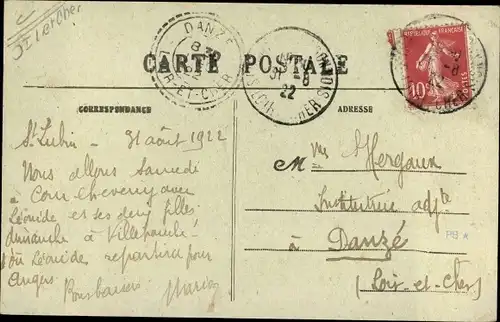 Loir et Cher
CARTE POSTALE
DANZÉ
LOIR-ET-CHER
31 - 8
22
RÉPUBLIQUE FRANÇAISE
10c
POSTES
CORRESPONDANCE
ADRESSE
St Lubin 31 août 1922
Nous allons Samedi
à Cour-Cheverny avec
Léonide et ses deux filles
dimanche à
où Léonide repartira pour
Angers
Bons baisers
Mme
Institutrice adjte
à Danzé
(Loir-et-Cher)